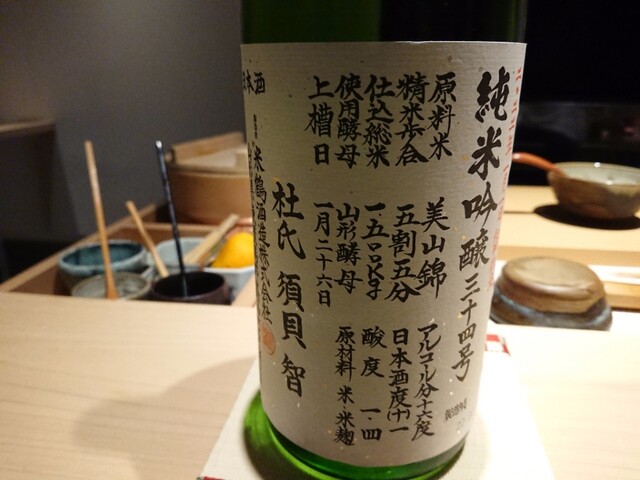 純米吟醸三十四号
原料米 美山錦
精米歩合 五割五分
仕込総米 一・五〇〇kg
使用酵母 山形酵母
上槽日 一月二十六日
アルコール分十六度
日本酒度(十)一
酸度 一・四
原材料 米・米麹
杜氏 須貝 智
米鶴酒造株式会社
本酒